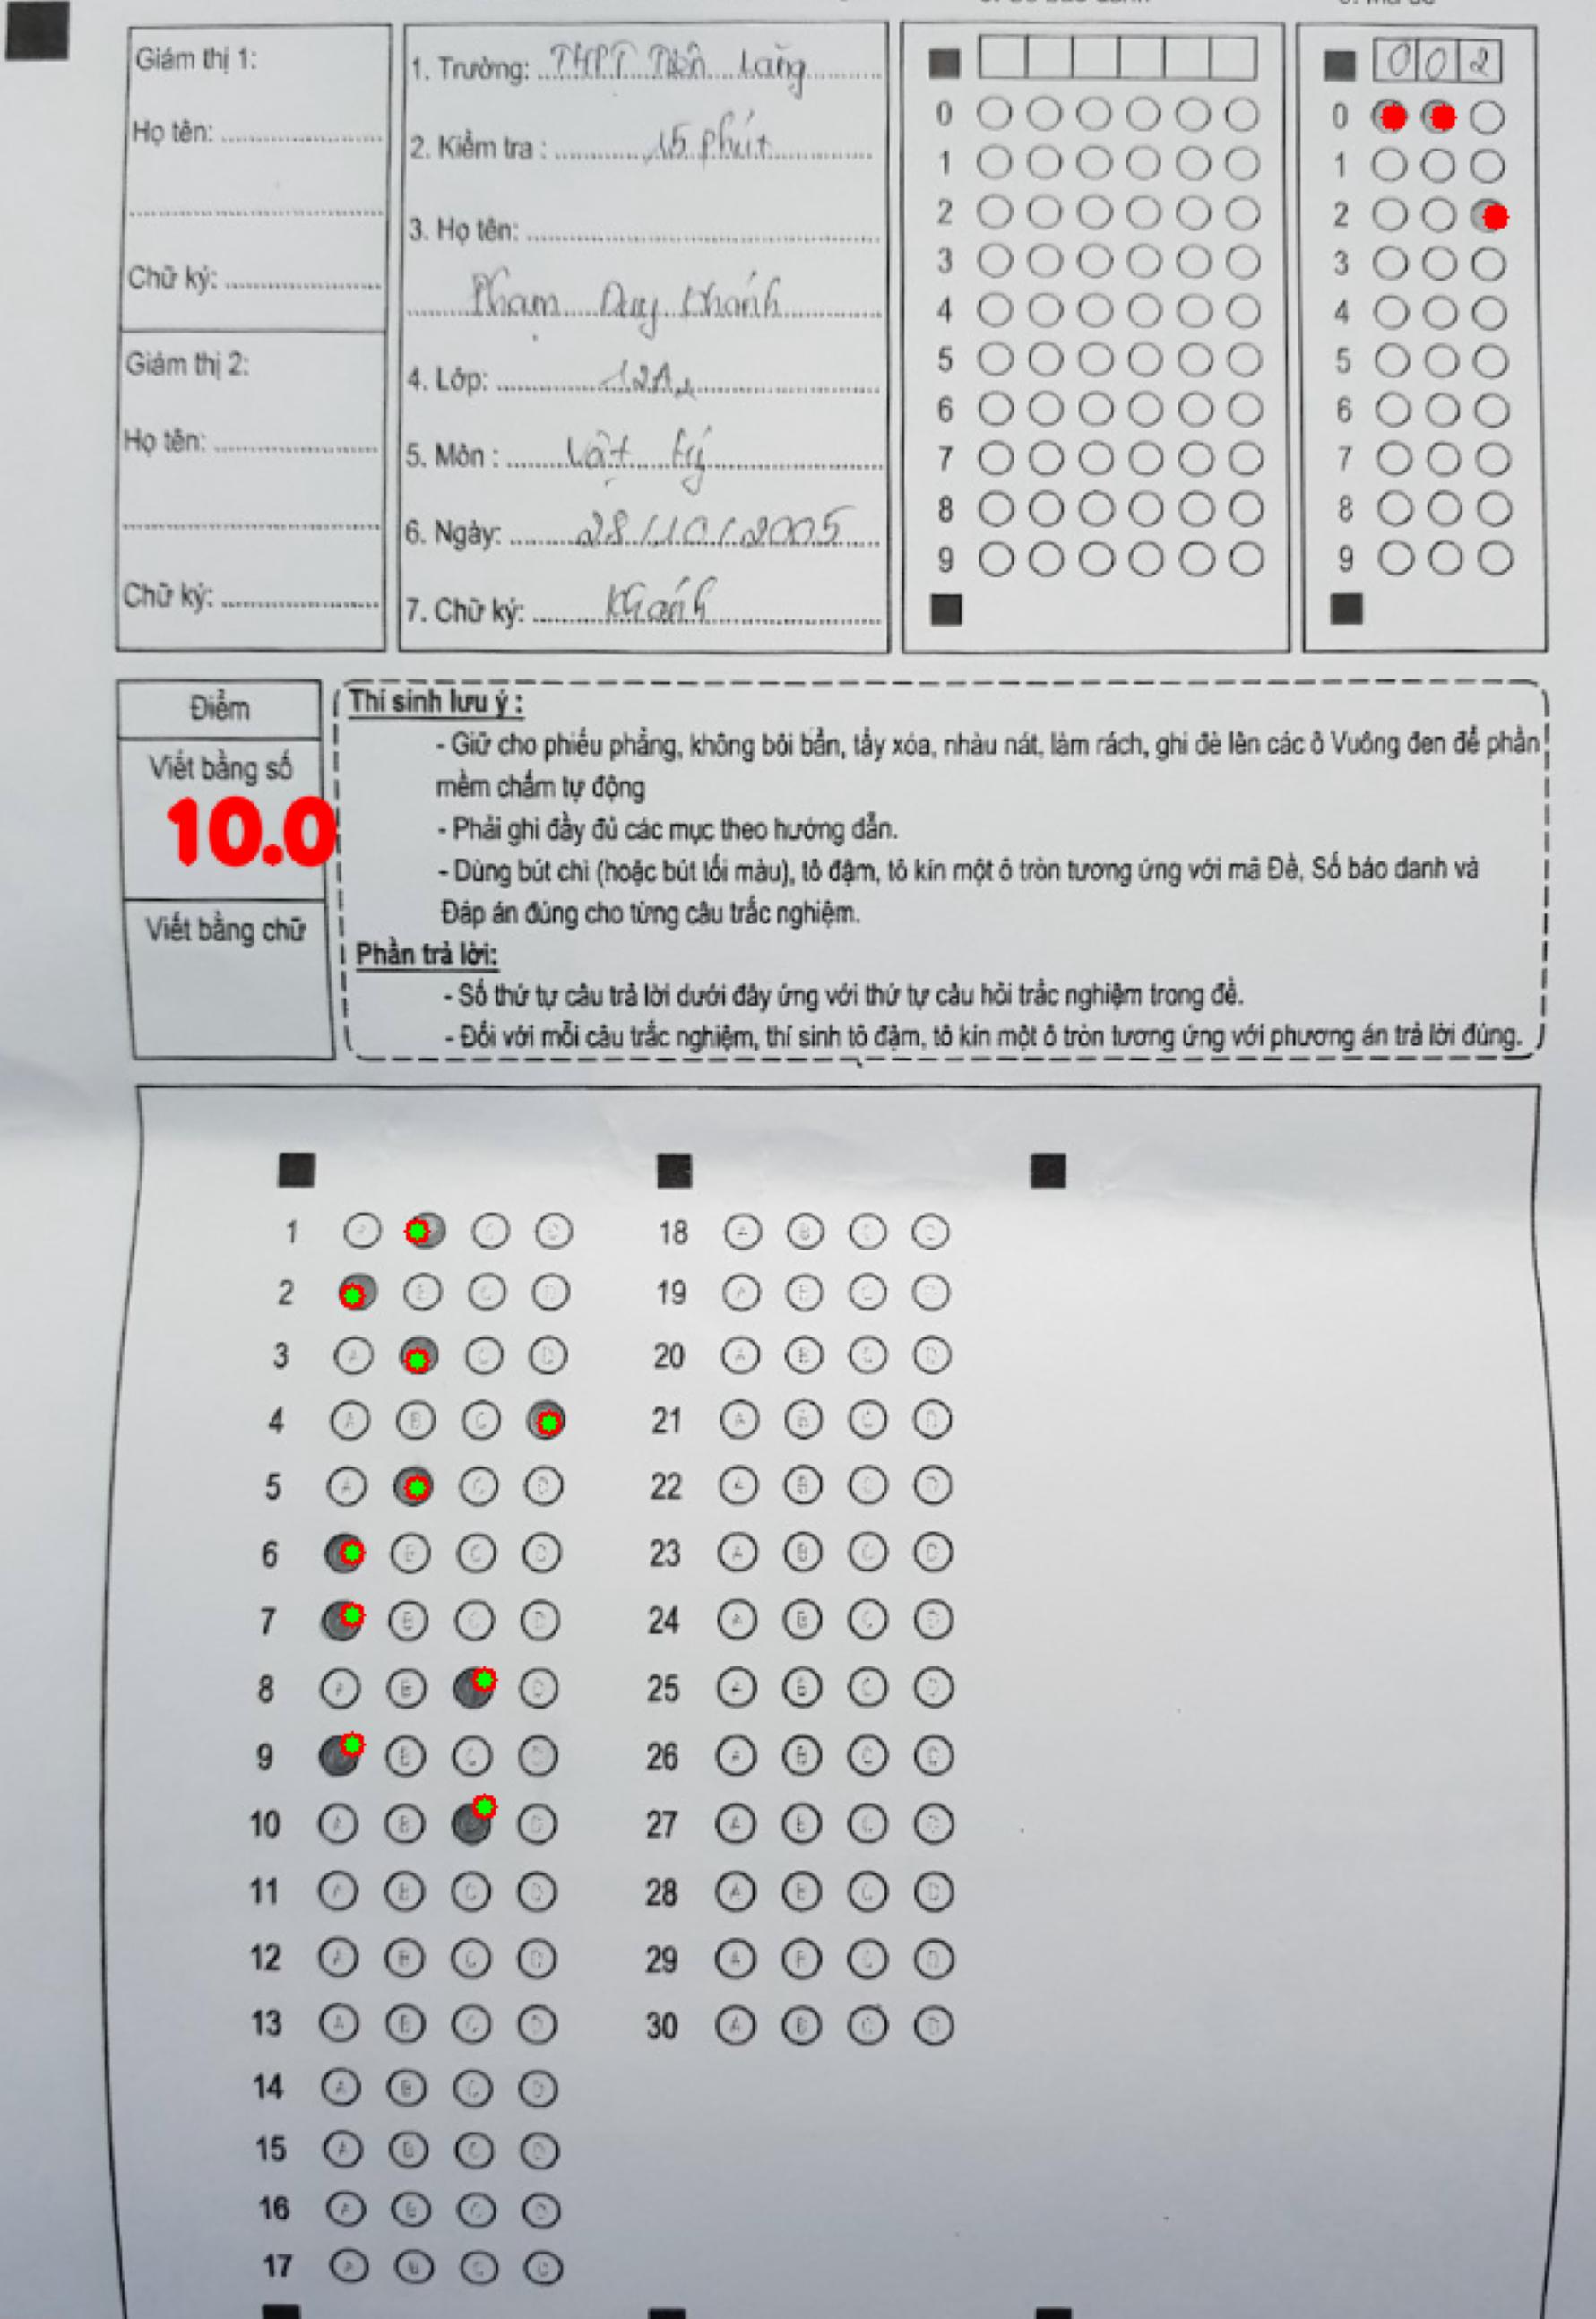 Giám thị 1:
Họ tên:
Chữ ký:
Giám thị 2:
Họ tên:
Chữ ký:
1. Trường: THPT Tiên Lãng
2. Kiểm tra : 15 phút
3. Họ tên:
Phạm Duy Khánh
4. Lớp: 12A
5. Môn : Vật lý
6. Ngày: 28/10/2005
7. Chữ ký: Khánh
0
1
2
3
4
5
6
7
8
9
0 0 2
0
1
2
3
4
5
6
7
8
9
Điểm
Viết bằng số
10.0
Viết bằng chữ
Thí sinh lưu ý :
- Giữ cho phiếu phẳng, không bôi bẩn, tẩy xóa, nhàu nát, làm rách, ghi đè lên các ô Vuông đen để phần
mềm chấm tự động
- Phải ghi đầy đủ các mục theo hướng dẫn.
- Dùng bút chì (hoặc bút tối màu), tô đậm, tô kín một ô tròn tương ứng với mã Đề, Số báo danh và
Đáp án đúng cho từng câu trắc nghiệm.
Phần trả lời:
- Số thứ tự câu trả lời dưới đây ứng với thứ tự câu hỏi trắc nghiệm trong đề.
- Đối với mỗi câu trắc nghiệm, thí sinh tô đậm, tô kín một ô tròn tương ứng với phương án trả lời đúng.
1
2
3
4
5
6
7
8
9
10
11
12
13
14
15
16
17
18
19
20
21
22
23
24
25
26
27
28
29
30